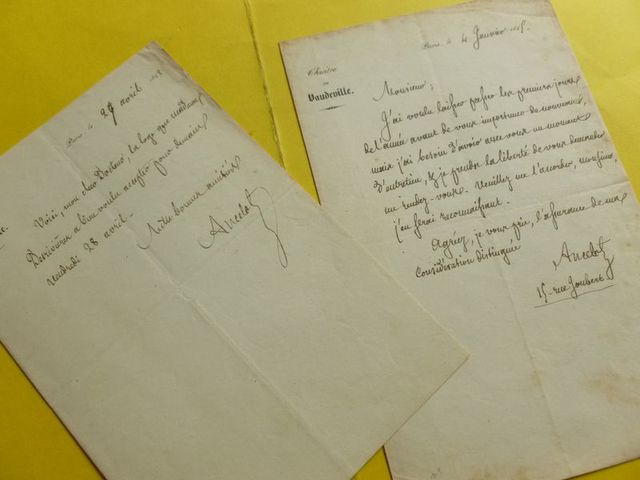 Paris, le 27 avril
Voici, mon cher Docteur, la loge que madame
a bien voulu accepter pour demain
vendredi 28 avril.
Ancelot
Paris, le 4 Janvier
Théatre
du
Vaudeville.
Monsieur,
J'ai voulu laisser passer les premiers jours
de l'année avant de vous importuner de nouveau,
mais j'ai besoin d'avoir avec vous un moment
d'entretien, & je prends la liberté de vous demander
un rendez-vous. Veuillez me l'accorder, monsieur,
j'en serai reconnaissant.
Agréez, je vous prie, l'assurance de ma
considération distinguée
Ancelot
15 rue Joubert